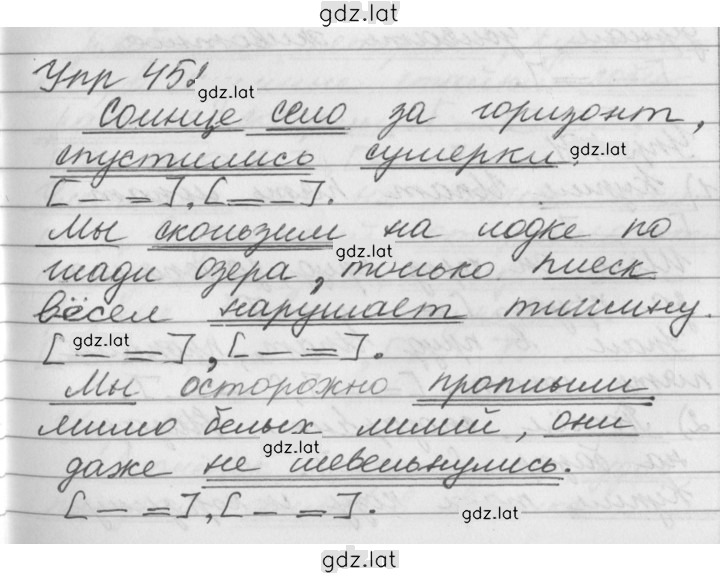 gdz.lat
Упр 45!
gdz.lat
Солнце село за горизонт,
спустились сумерки.
gdz.lat
[— =], [= —].
Мы скользим на лодке по
gdz.lat
глади озера, только плеск
вёсел нарушает тишину.
gdz.lat
[— =], [— =].
Мы осторожно проплыли
мимо белых лилий, они
gdz.lat
даже не шевельнулись.
[— =], [— =].
gdz.lat
gdz.lat